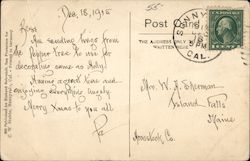 Dec. 18, 1915
Post Card
Am sending twigs from
the Pepper tree to use for
decorating same as Holly!
Having a good time and
enjoying everything hugely.
Merry Xmas to you all
THE ADDRESS ONLY
WRITTEN HERE
CAL.
Mrs. W. A. Sherman
Island Falls
Maine
Aroostook Co.